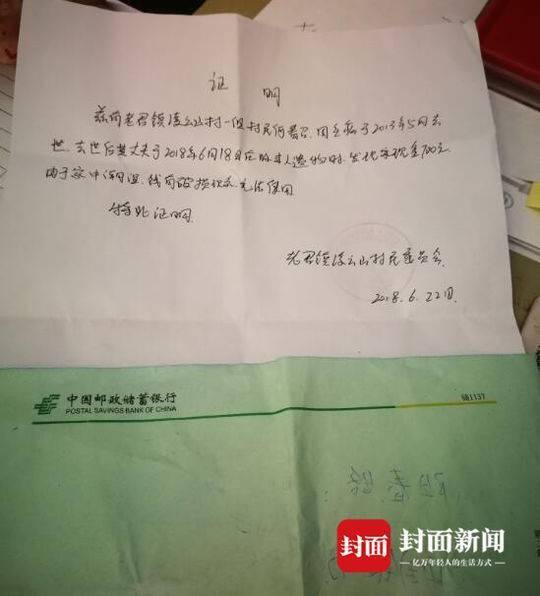 证 明
兹有老君镇凌云山村一组村民何春召,因生病于2013年5月去
世,去世后其丈夫于2018年6月18日在收其人遗物时,发现家现金700元,
由于家中潮湿,钱有破损现象,无法使用
特此证明
老君镇凌云山村民委员会
2018.6.22日
中国邮政储蓄银行
POSTAL SAVINGS BANK OF CHINA
6B1137
封面
封面新闻
亿万年轻人的生活方式